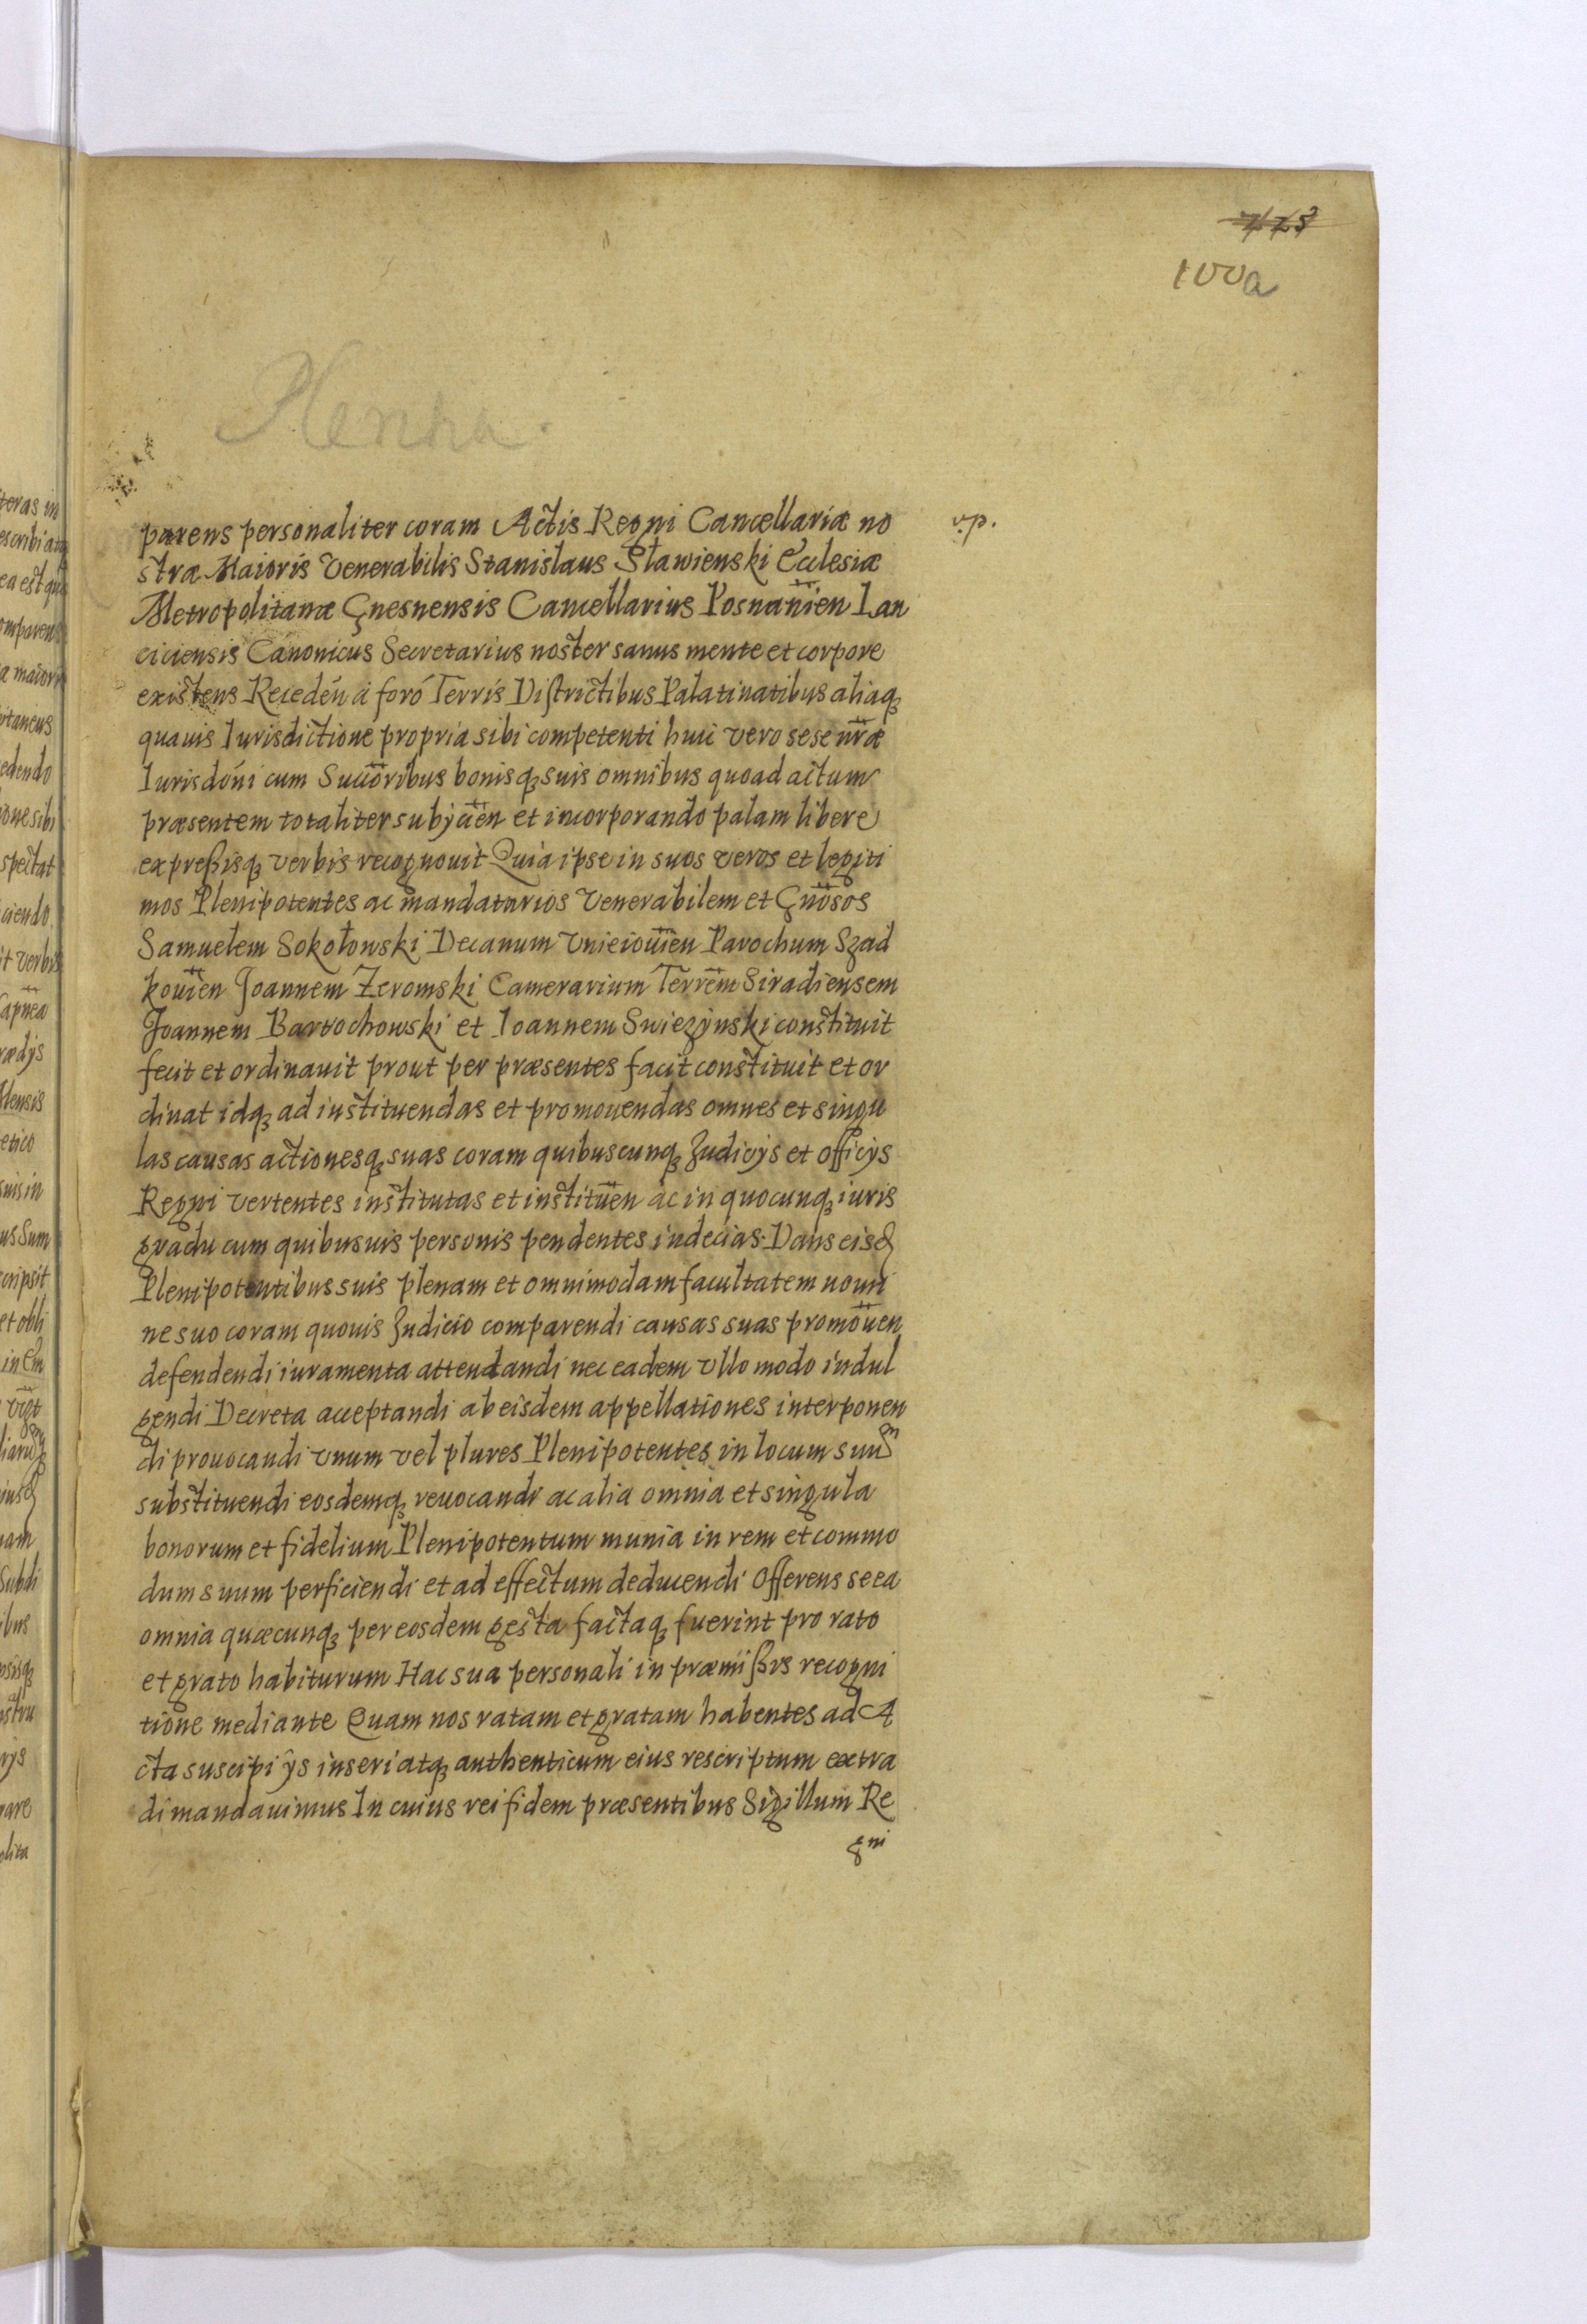 723
100a
Plenna.
parens personaliter coram Actis Regni Cancellariæ no v.p.
stræ Maioris Venerabilis Stanislaus Sławienski Ecclesiæ
Metropolitanæ Gnesnensis Cancellarius Posnanien Lan
ciciensis Canonicus Secretarius noster sanus mente et corpore
existens Receden à foro Terris Districtibus Palatinatibus aliaq3
quauis Iurisdictione propria sibi competenti huic vero sese nræ
Iurisdoni cum Succoribus bonisq3 suis omnibus quoad actum
præsentem totaliter subÿcien et incorporando palam libere
expreßisq3 verbis recognouit Quia ipse in suos veros et legiti
mos Plenipotentes ac mandatarios Venerabilem et Gnosos
Samuelem Sokołowski Decanum Vnieiouien Parochum Szad
kouien Joannem Zeromski Camerarium Terrem Siradiensem
Joannem Bartochowski et Ioannem Swiezÿnski constituit
fecit et ordinauit prout per præsentes facit constituit et or
dinat idq3 ad instituendas et promouendas omnes et singu
las causas actionesq3 suas coram quibuscunq3 Judicÿs et officÿs
Regni vertentes institutas et instituen ac in quocunq3 iuris
gradu cum quibusuis personis pendentes indecias. Dans eisd
Plenipotentibus suis plenam et omnimodam facultatem nomi
ne suo coram quouis Judicio comparendi causas suas promouen
defendendi iuramenta attendandi nec eadem vllo modo indul
gendi Decreta acceptandi ab eisdem appellationes interponen
di prouocandi vnum vel plures Plenipotentes in locum suum
substituendi eosdemq3 reuocandi ac alia omnia et singula
bonorum et fidelium Plenipotentum munia in rem et commo
dum suum perficiendi et ad effectum deducendi Offerens se ea
omnia quæcunq3 per eosdem gesta factaq3 fuerint pro rato
et grato habiturum Hac sua personali in præmißis recogni
tione mediante Quam nos ratam et gratam habentes ad A
cta suscipi ÿs inseri atq3 authenticum eius rescriptum extra
di mandauimus In cuius rei fidem præsentibus Sigillum Re
gni